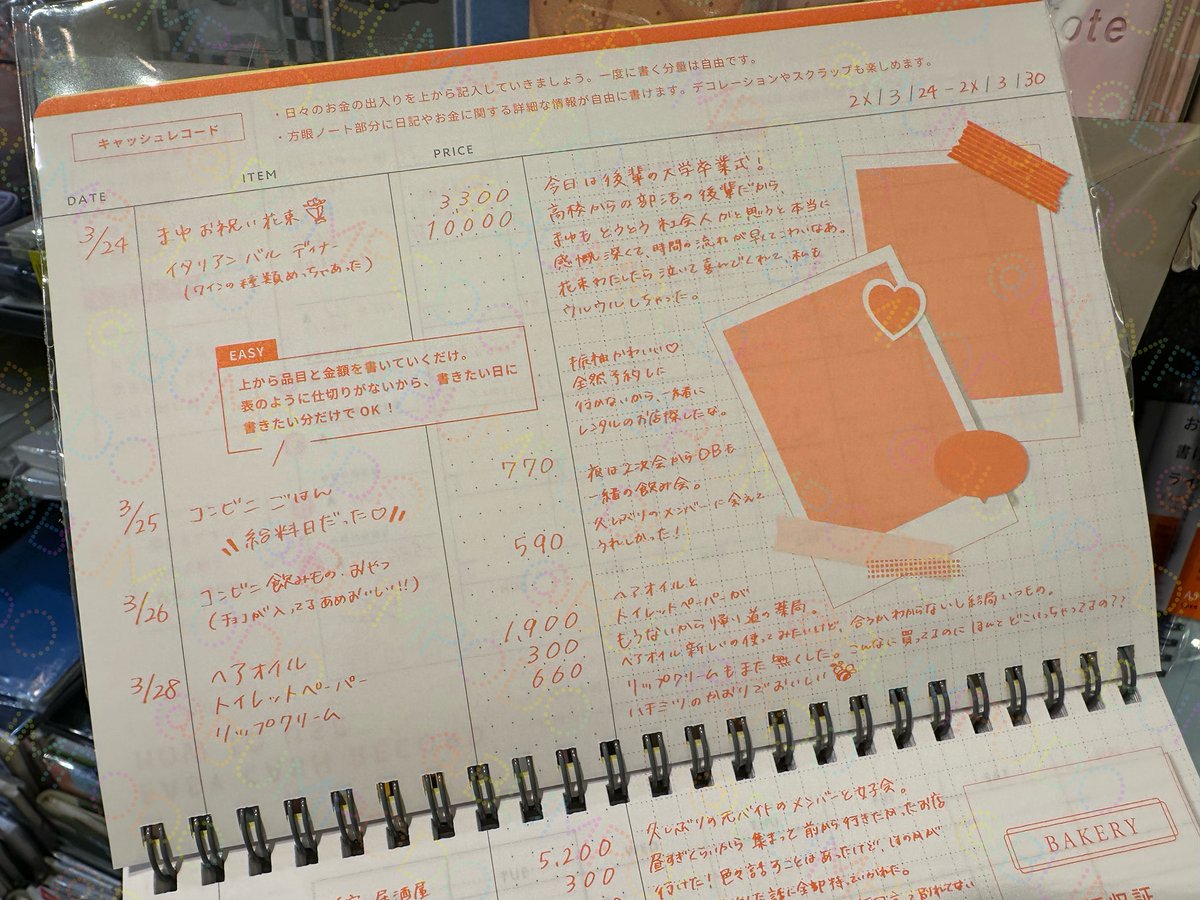 ote
・日々のお金の出入りを上から記入していきましょう。一度に書く分量は自由です。
・方眼ノート部分に日記やお金に関する詳細な情報が自由に書けます。デコレーションやスクラップも楽しめます。
キャッシュレコード
2X / 3 / 24 - 2X / 3 / 30
DATE
ITEM
PRICE
3/24
まゆお祝い花束
3300
イタリアン バル ディナー
10,000
(ワインの種類めっちゃあった)
今日は後輩の大学卒業式！
高校からの部活の後輩だから、
まゆも とうとう 社会人かと思うと本当に
感慨深くて、時間の流れが早くてこわいなあ。
花束わたしたら泣いて喜んでくれて、私も
ウルウルしちゃった。
EASY
上から品目と金額を書いていくだけ。
表のように仕切りがないから、書きたい日に
書きたい分だけで OK！
振袖かわいい♡
全然予約しに
行かないから、一緒に
レンタルのお店探したな。
夜は2次会からOBも
一緒の飲み会。
久しぶりのメンバーに会えて
うれしかった！
3/25
コンビニ ごはん
770
給料日だった♡
3/26
コンビニ 飲みもの・おやつ
590
(チョコが入ってるあめおいしい!!)
3/28
ヘアオイル
1,900
トイレットペーパー
300
リップクリーム
660
ヘアオイルと
トイレットペーパーが
もうないから帰り道の薬局。
ヘアオイル新しいの使ってみたいけど、合うかわからないし結局いつもの。
リップクリームもまた無くした。こんなに買ってるのにほんとどこいっちゃってるの??
ハチミツのかおりでおいしい
5,200
300
居酒屋
久しぶりの元バイトのメンバーと女子会。
昼すぎくらいから集まって前から行きたかったお店
行けた！色々話すことはあったけど、
BAKERY